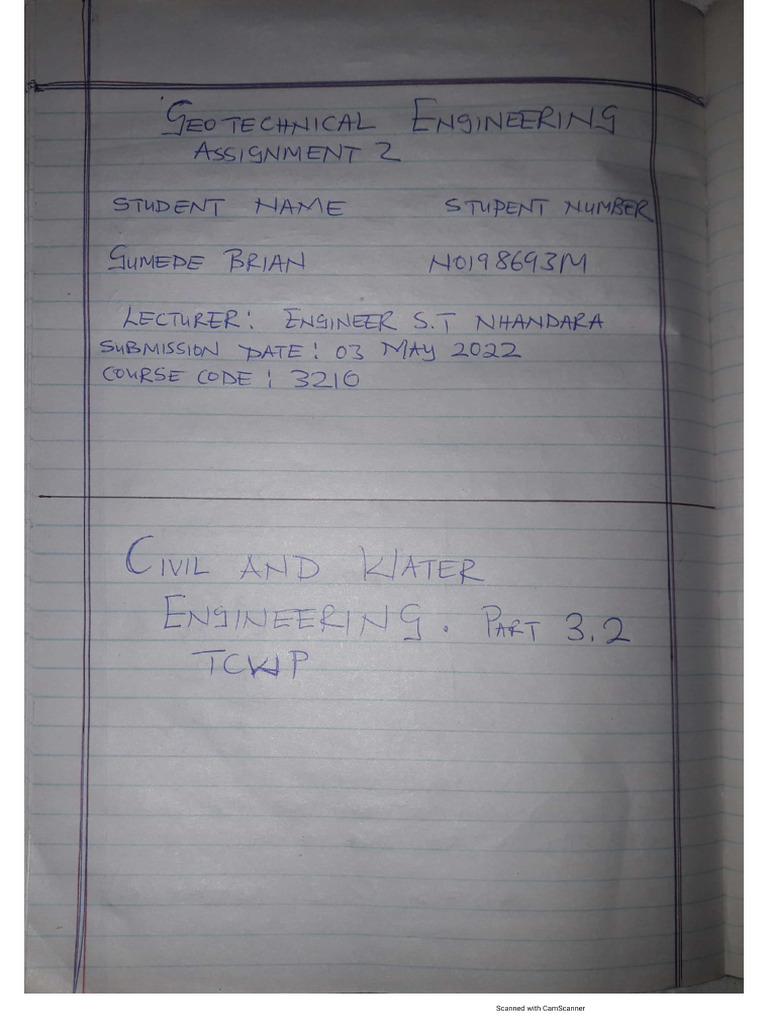 GEOTECHNICAL ENGINEERING
ASSIGNMENT 2
STUDENT NAME STUDENT NUMBER
GUMEDE BRIAN N0198693M
LECTURER: ENGINEER S.T NHANDARA
SUBMISSION DATE: 03 MAY 2022
COURSE CODE: 3210
CIVIL AND WATER
ENGINEERING. PART 3.2
TCWP
Scanned with CamScanner